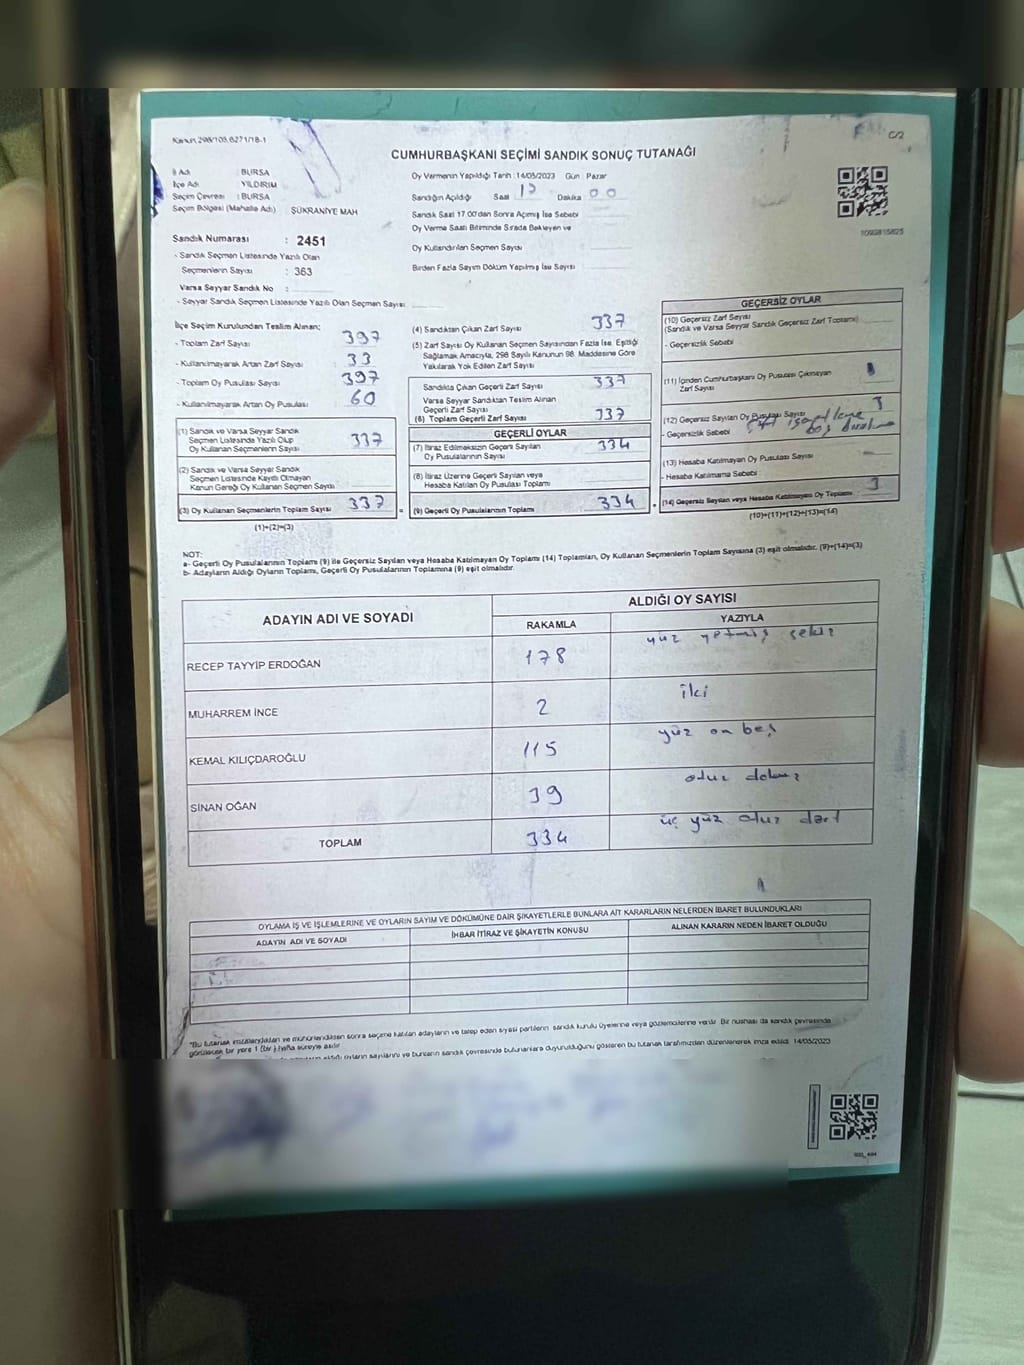 Kanun,298/105,6271/18-1
C/2
CUMHURBAŞKANI SEÇİMİ SANDIK SONUÇ TUTANAĞI
İl Adı : BURSA
İlçe Adı : YILDIRIM
Seçim Çevresi : BURSA
Seçim Bölgesi (Mahalle Adı) : ŞÜKRANİYE MAH
Sandık Numarası : 2451
- Sandık Seçmen Listesinde Yazılı Olan
Seçmenlerin Sayısı : 363
Varsa Seyyar Sandık No :
- Seyyar Sandık Seçmen Listesinde Yazılı Olan Seçmen Sayısı :
Oy Vermenin Yapıldığı Tarih :14/05/2023 Gün : Pazar
Sandığın Açıldığı Saat Dakika 00
Sandık Saat 17.00'dan Sonra Açılmış İse Sebebi
Oy Verme Saati Bitiminde Sırada Bekleyen ve
Oy Kullandırılan Seçmen Sayısı
Birden Fazla Sayım Döküm Yapılmış İse Sayısı
1093815825
İlçe Seçim Kurulundan Teslim Alınan;
- Toplam Zarf Sayısı : 397
- Kullanılmayarak Artan Zarf Sayısı : 33
- Toplam Oy Pusulası Sayısı : 397
- Kullanılmayarak Artan Oy Pusulası : 60
(1) Sandık ve Varsa Seyyar Sandık
Seçmen Listesinde Yazılı Olup
Oy Kullanan Seçmenlerin Sayısı : 337
(2) Sandık ve Varsa Seyyar Sandık
Seçmen Listesinde Kayıtlı Olmayan
Kanun Gereği Oy Kullanan Seçmen Sayısı :
(3) Oy Kullanan Seçmenlerin Toplam Sayısı : 337
(1)+(2)=(3)
(4) Sandıktan Çıkan Zarf Sayısı 337
(5) Zarf Sayısı Oy Kullanan Seçmen Sayısından Fazla İse, Eşitliği
Sağlamak Amacıyla, 298 Sayılı Kanunun 98. Maddesine Göre
Yakılarak Yok Edilen Zarf Sayısı
Sandıkta Çıkan Geçerli Zarf Sayısı 337
Varsa Seyyar Sandıktan Teslim Alınan
Geçerli Zarf Sayısı
(6) Toplam Geçerli Zarf Sayısı 337
GEÇERLİ OYLAR
(7) İtiraz Edilmeksizin Geçerli Sayılan
Oy Pusulalarının Sayısı 334
(8) İtiraz Üzerine Geçerli Sayılan veya
Hesaba Katılan Oy Pusulası Toplamı
(9) Geçerli Oy Pusulalarının Toplamı 334
GEÇERSİZ OYLAR
(10) Geçersiz Zarf Sayısı
(Sandık ve Varsa Seyyar Sandık Geçersiz Zarf Toplamı)
- Geçersizlik Sebebi
(11) İçinden Cumhurbaşkanı Oy Pusulası Çıkmayan
Zarf Sayısı
(12) Geçersiz Sayılan Oy Pusulası Sayısı 3
- Geçersizlik Sebebi
(13) Hesaba Katılmayan Oy Pusulası Sayısı
- Hesaba Katılmama Sebebi
(14) Geçersiz Sayılan veya Hesaba Katılmayan Oy Toplamı 3
(10)+(11)+(12)+(13)=(14)
NOT:
a- Geçerli Oy Pusulalarının Toplamı (9) ile Geçersiz Sayılan veya Hesaba Katılmayan Oy Toplamı (14) Toplamları, Oy Kullanan Seçmenlerin Toplam Sayısına (3) eşit olmalıdır. (9)+(14)=(3)
b- Adayların Aldığı Oyların Toplamı, Geçerli Oy Pusulalarının Toplamına (9) eşit olmalıdır.
ADAYIN ADI VE SOYADI
ALDIĞI OY SAYISI
RAKAMLA YAZIYLA
RECEP TAYYİP ERDOĞAN 178 yüz yetmiş sekiz
MUHARREM İNCE 2 iki
KEMAL KILIÇDAROĞLU 115 yüz on beş
SİNAN OĞAN 39 otuz dokuz
TOPLAM 334 üç yüz otuz dört
OYLAMA İŞ VE İŞLEMLERİNE VE OYLARIN SAYIM VE DÖKÜMÜNE DAİR ŞİKAYETLERLE BUNLARA AİT KARARLARIN NELERDEN İBARET BULUNDUKLARI
ADAYIN ADI VE SOYADI İHBAR İTİRAZ VE ŞİKAYETİN KONUSU ALINAN KARARIN NEDEN İBARET OLDUĞU
"Bu tutanak imzalandıktan ve mühürlendikten sonra seçime katılan adayların ve talep eden siyasi partilerin sandık kurulu üyelerine veya gözlemcilerine verilir. Bir nüshası da sandık çevresinde
görülecek bir yere 1 (bir) hafta süreyle asılır
oyların sayılarını ve bunların sandık çevresinde bulunanlara duyurulduğunu gösteren bu tutanak tarafımızdan düzenlenerek imza edildi. 14/05/2023